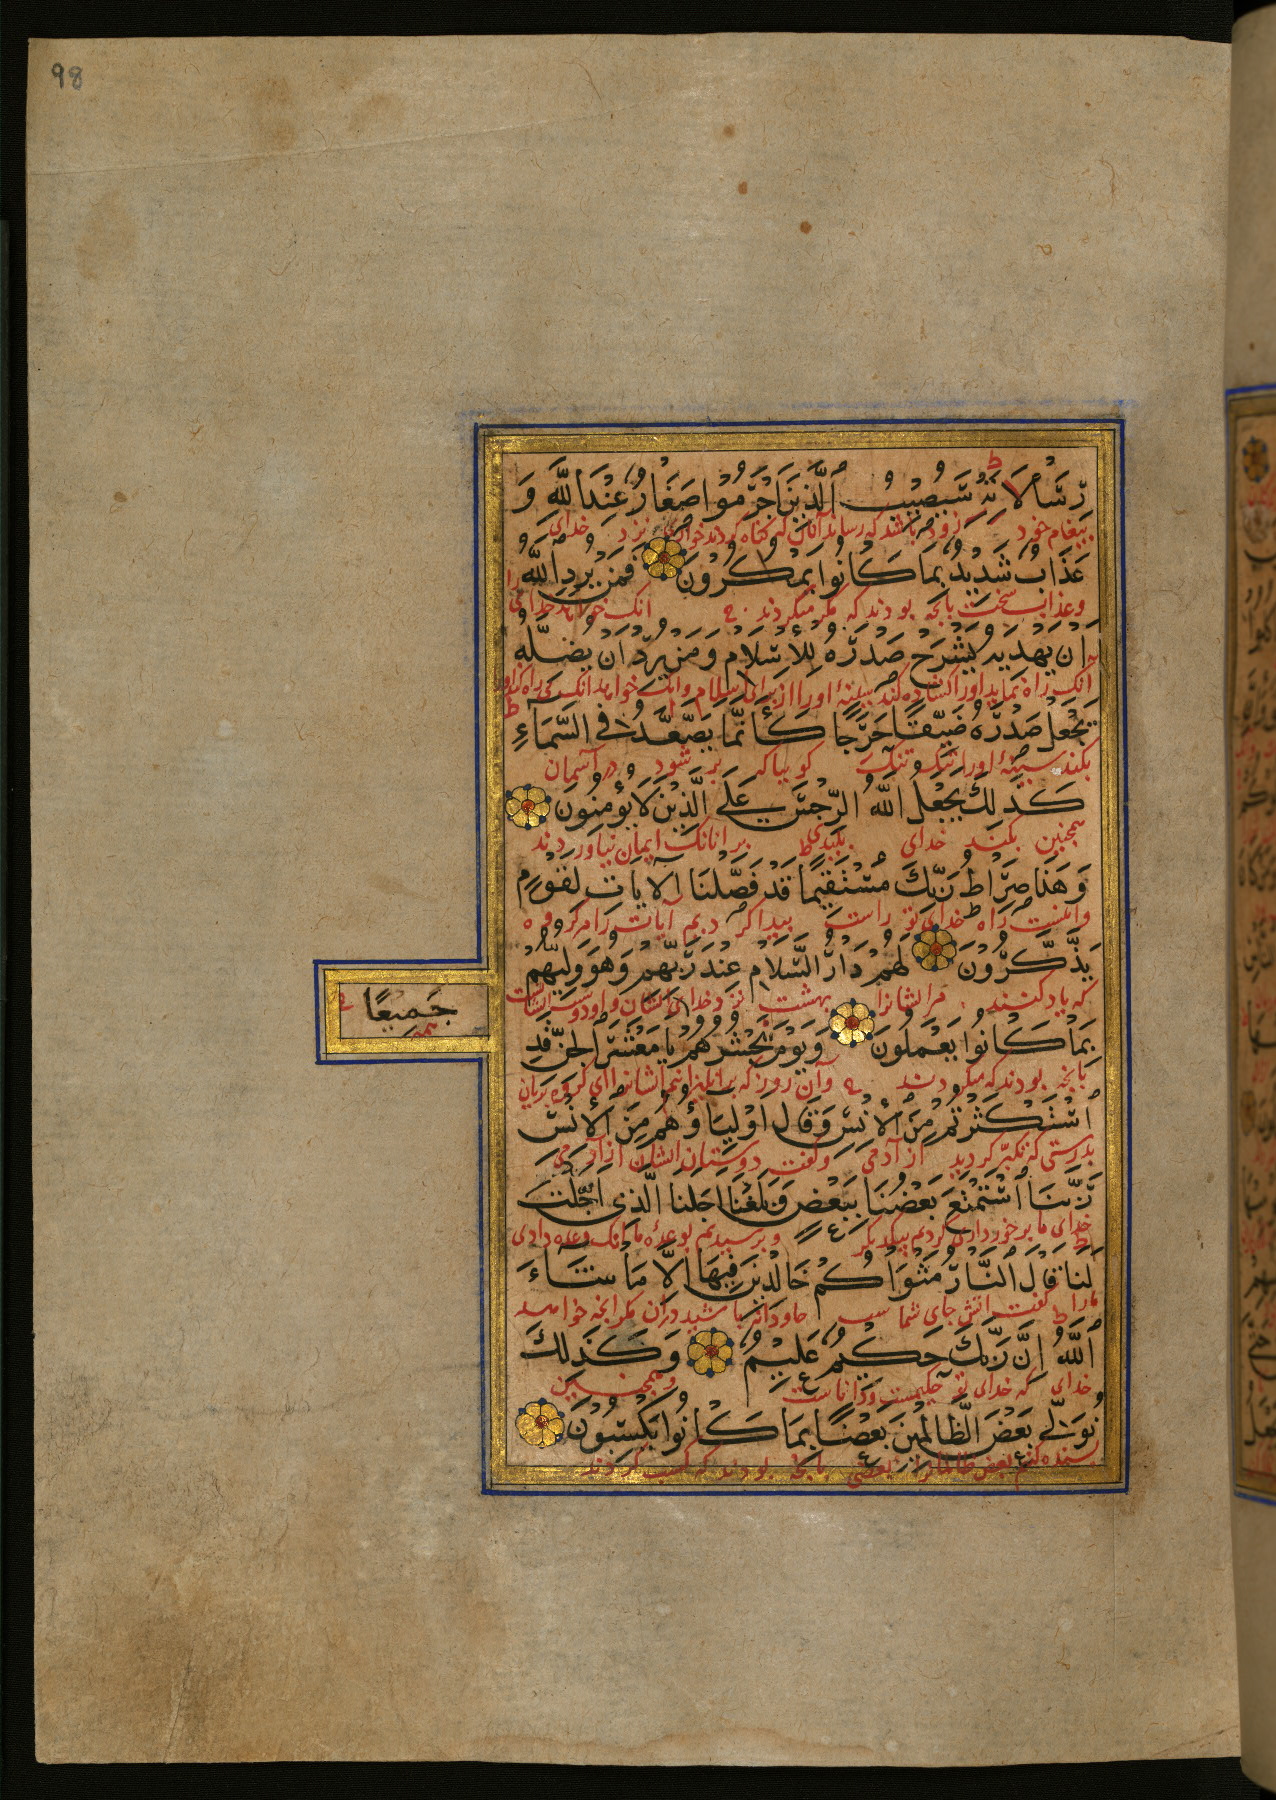 98
رِسَالَاتِهِ سَيُصِيبُ ٱلَّذِينَ أَجْرَمُوا صَغَارٌ عِنْدَ اللَّهِ وَ
بیغام خود زود باشد که رساند آنان که گناه کردند خواری نزد خدای
عَذَابٌ شَدِيدٌ بِمَا كَانُوا يَمْكُرُونَ فَمَنْ يُرِدِ اللَّهُ
وعذاب سخت بانچه بودند که مکر میکردند انک خواهد خدای
أَنْ يَهْدِيَهُ يَشْرَحْ صَدْرَهُ لِلْإِسْلَامِ وَمَنْ يُرِدْ أَنْ يُضِلَّهُ
انک راه نماید اورا کشاده کند سینهٔ اورا از برای اسلام وانک خواهد انک
يَجْعَلْ صَدْرَهُ ضَيِّقًا حَرَجًا كَأَنَّمَا يَصَّعَّدُ فِي السَّمَاءِ
بکند سینهٔ اورا تنک تنک کویاکه بر شود در آسمان
كَذَلِكَ يَجْعَلُ اللَّهُ الرِّجْسَ عَلَى الَّذِينَ لَا يُؤْمِنُونَ
همچنین بکند خدای پلیدی بر انانک ایمان نیاوردند
وَهَذَا صِرَاطُ رَبِّكَ مُسْتَقِيمًا قَدْ فَصَّلْنَا الْآيَاتِ لِقَوْمٍ
واینست راه خدای تو راست بیدا کردیم آیات را مر کروه
يَذَّكَّرُونَ لَهُمْ دَارُ السَّلَامِ عِنْدَ رَبِّهِمْ وَهُوَ وَلِيُّهُمْ
که یاد کنند مرایشانرا بهشت نزد خدای ایشان واو دوست ایشانست
بِمَا كَانُوا يَعْمَلُونَ وَيَوْمَ نَحْشُرُهُمْ يَا مَعْشَرَ الْجِنِّ قَدِ
جَمِيعًا
همه
بانچه بودند که میکردند وآن روز که برانکیزانیم ایشانرا ای کروه پریان
ٱسْتَكْثَرْتُمْ مِنَ ٱلْإِنْسِ وَقَالَ أَوْلِيَاؤُهُمْ مِنَ ٱلْإِنْسِ
بدرستی که تکبر کردید از آدمی وکفت دوستان ایشان از آدمی
رَبَّنَا ٱسْتَمْتَعَ بَعْضُنَا بِبَعْضٍ وَبَلَغْنَا أَجَلَنَا الَّذِي أَجَّلْتَ
خدای ما برخورداری کردیم بیکدیکر وبرسیدیم بوعدهٔ ما انک وعده دادی
لَنَا قَالَ ٱلنَّارُ مَثْوَاكُمْ خَالِدِينَ فِيهَا إِلَّا مَا شَاءَ
مارا کفت اتش جای شماست جاودانه باشید دران مکر انچه خواهد
ٱللَّهُ إِنَّ رَبَّكَ حَكِيمٌ عَلِيمٌ وَكَذَلِكَ
خدای که خدای تو حکیمست ودانا ست وهمچنین
نُوَلِّي بَعْضَ الظَّالِمِينَ بَعْضًا بِمَا كَانُوا يَكْسِبُونَ
بعضی بانچه بودند که کسب کردند